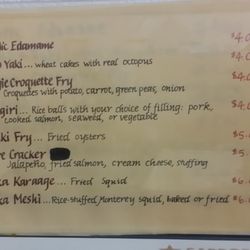 ic Edamame $4.0
Yaki... wheat cakes with real octopus
gie Croquette Fry
Croquettes with potato, carrot, green peas, onion
giri... Rice balls with your choice of filling: pork,
cooked salmon, seaweed, or vegetable
ki Fry... Fried oysters
e Cracker
Jalapeño, fried salmon, cream cheese, stuffing
ka Karaage... Fried Squid
ka Meshi...Rice-stuffed, Monterey squid, baked or fried